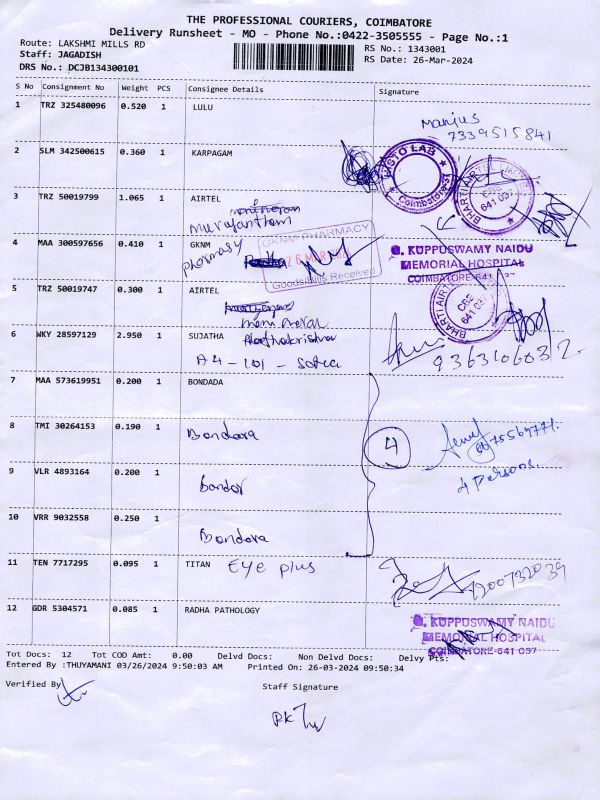 THE PROFESSIONAL COURIERS, COIMBATORE
Delivery Runsheet - MO - Phone No.:0422-3505555 - Page No.:1
Route: LAKSHMI MILLS RD
RS No.: 1343001
Staff: JAGADISH
RS Date: 26-Mar-2024
DRS No.: DCJB134300101
S No Consignment No Weight PCS Consignee Details Signature
1 TRZ 325480096 0.520 1 LULU
Manjus
7339515841
2 SLM 342500615 0.360 1 KARPAGAM
VISTO LAB
Coimbatore
3 TRZ 50019799 1.065 1 AIRTEL
BHARTI AIRTEL
CBE
641 037
4 MAA 300597656 0.410 1 GKNM
pharmacy
GKNM PHARMACY
Goods Received
G. KUPPUSWAMY NAIDU
MEMORIAL HOSPITAL
COIMBATORE-641 037
5 TRZ 50019747 0.300 1 AIRTEL
BHARTI AIRTEL
CBE
641 037
6 WKY 28597129 2.950 1 SUJATHA
A4-101-
9363106032
7 MAA 573619951 0.200 1 BONDADA
8 TMI 30264153 0.190 1 Bondara
4
4 Persons.
9 VLR 4893164 0.200 1 Bondor
10 VRR 9032558 0.250 1 Bondara
11 TEN 7717295 0.095 1 TITAN Eye plus
7200732039
12 GDR 5304571 0.085 1 RADHA PATHOLOGY
G. KUPPUSWAMY NAIDU
MEMORIAL HOSPITAL
COIMBATORE-641 037
Tot Docs: 12 Tot COD Amt: 0.00 Delvd Docs: Non Delvd Docs: Delvy Pts:
Entered By :THUYAMANI 03/26/2024 9:50:03 AM Printed On: 26-03-2024 09:50:34
Verified By
Staff Signature